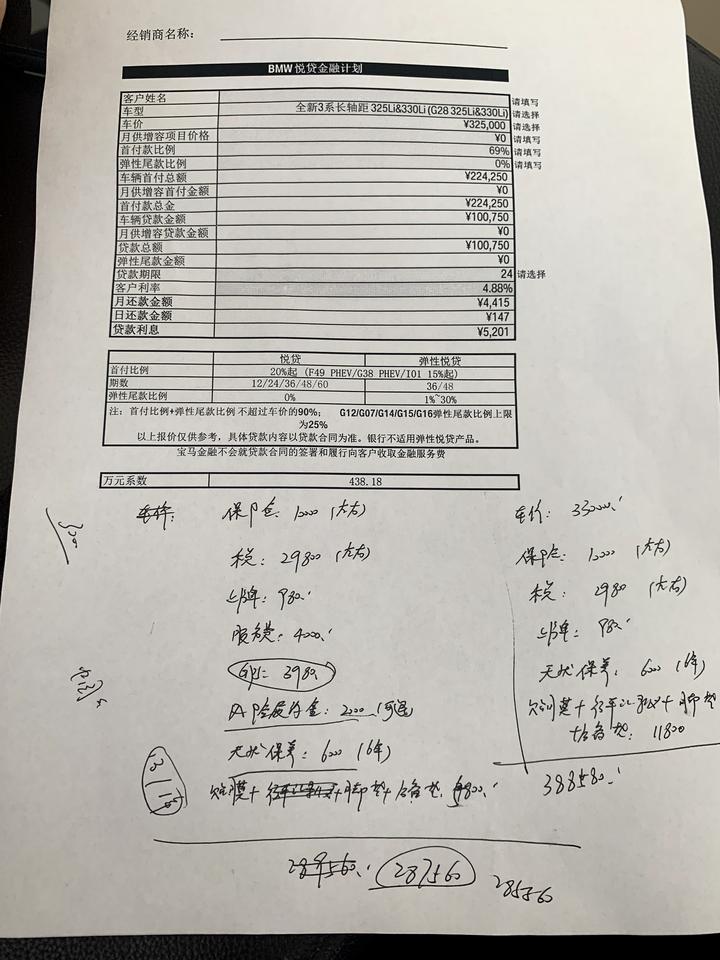 经销商名称：
BMW 悦贷金融计划
客户姓名 请填写
车型 全新3系长轴距 325Li&330Li (G28 325Li&330Li) 请选择
车价 ¥325,000 请选择
月供增容项目价格 ¥0 请填写
首付款比例 69% 请填写
弹性尾款比例 0% 请填写
车辆首付总额 ¥224,250
月供增容首付金额 ¥0
首付款总金 ¥224,250
车辆贷款金额 ¥100,750
月供增容贷款金额 ¥0
贷款总额 ¥100,750
弹性尾款金额 ¥0
贷款期限 24 请选择
客户利率 4.88%
月还款金额 ¥4,415
日还款金额 ¥147
贷款利息 ¥5,201
悦贷 弹性悦贷
首付比例 20%起 (F49 PHEV/G38 PHEV/I01 15%起)
期数 12/24/36/48/60 36/48
弹性尾款比例 0% 1%~30%
注：首付比例+弹性尾款比例 不超过车价的90%； G12/G07/G14/G15/G16弹性尾款比例上限
为25%
以上报价仅供参考，具体贷款内容以贷款合同为准。银行不适用弹性悦贷产品。
宝马金融不会就贷款合同的签署和履行向客户收取金融服务费
万元系数 438.18
车价: 330000.
税: 29800 (大右)
上牌: 980.
服务费: 4000.
GPS: 3980.
无忧保养: 6000 (6年)
上牌: 980.
无忧保养: 6000 (6年)
+后备垫: 11800
388580.
289560. 287560 285560